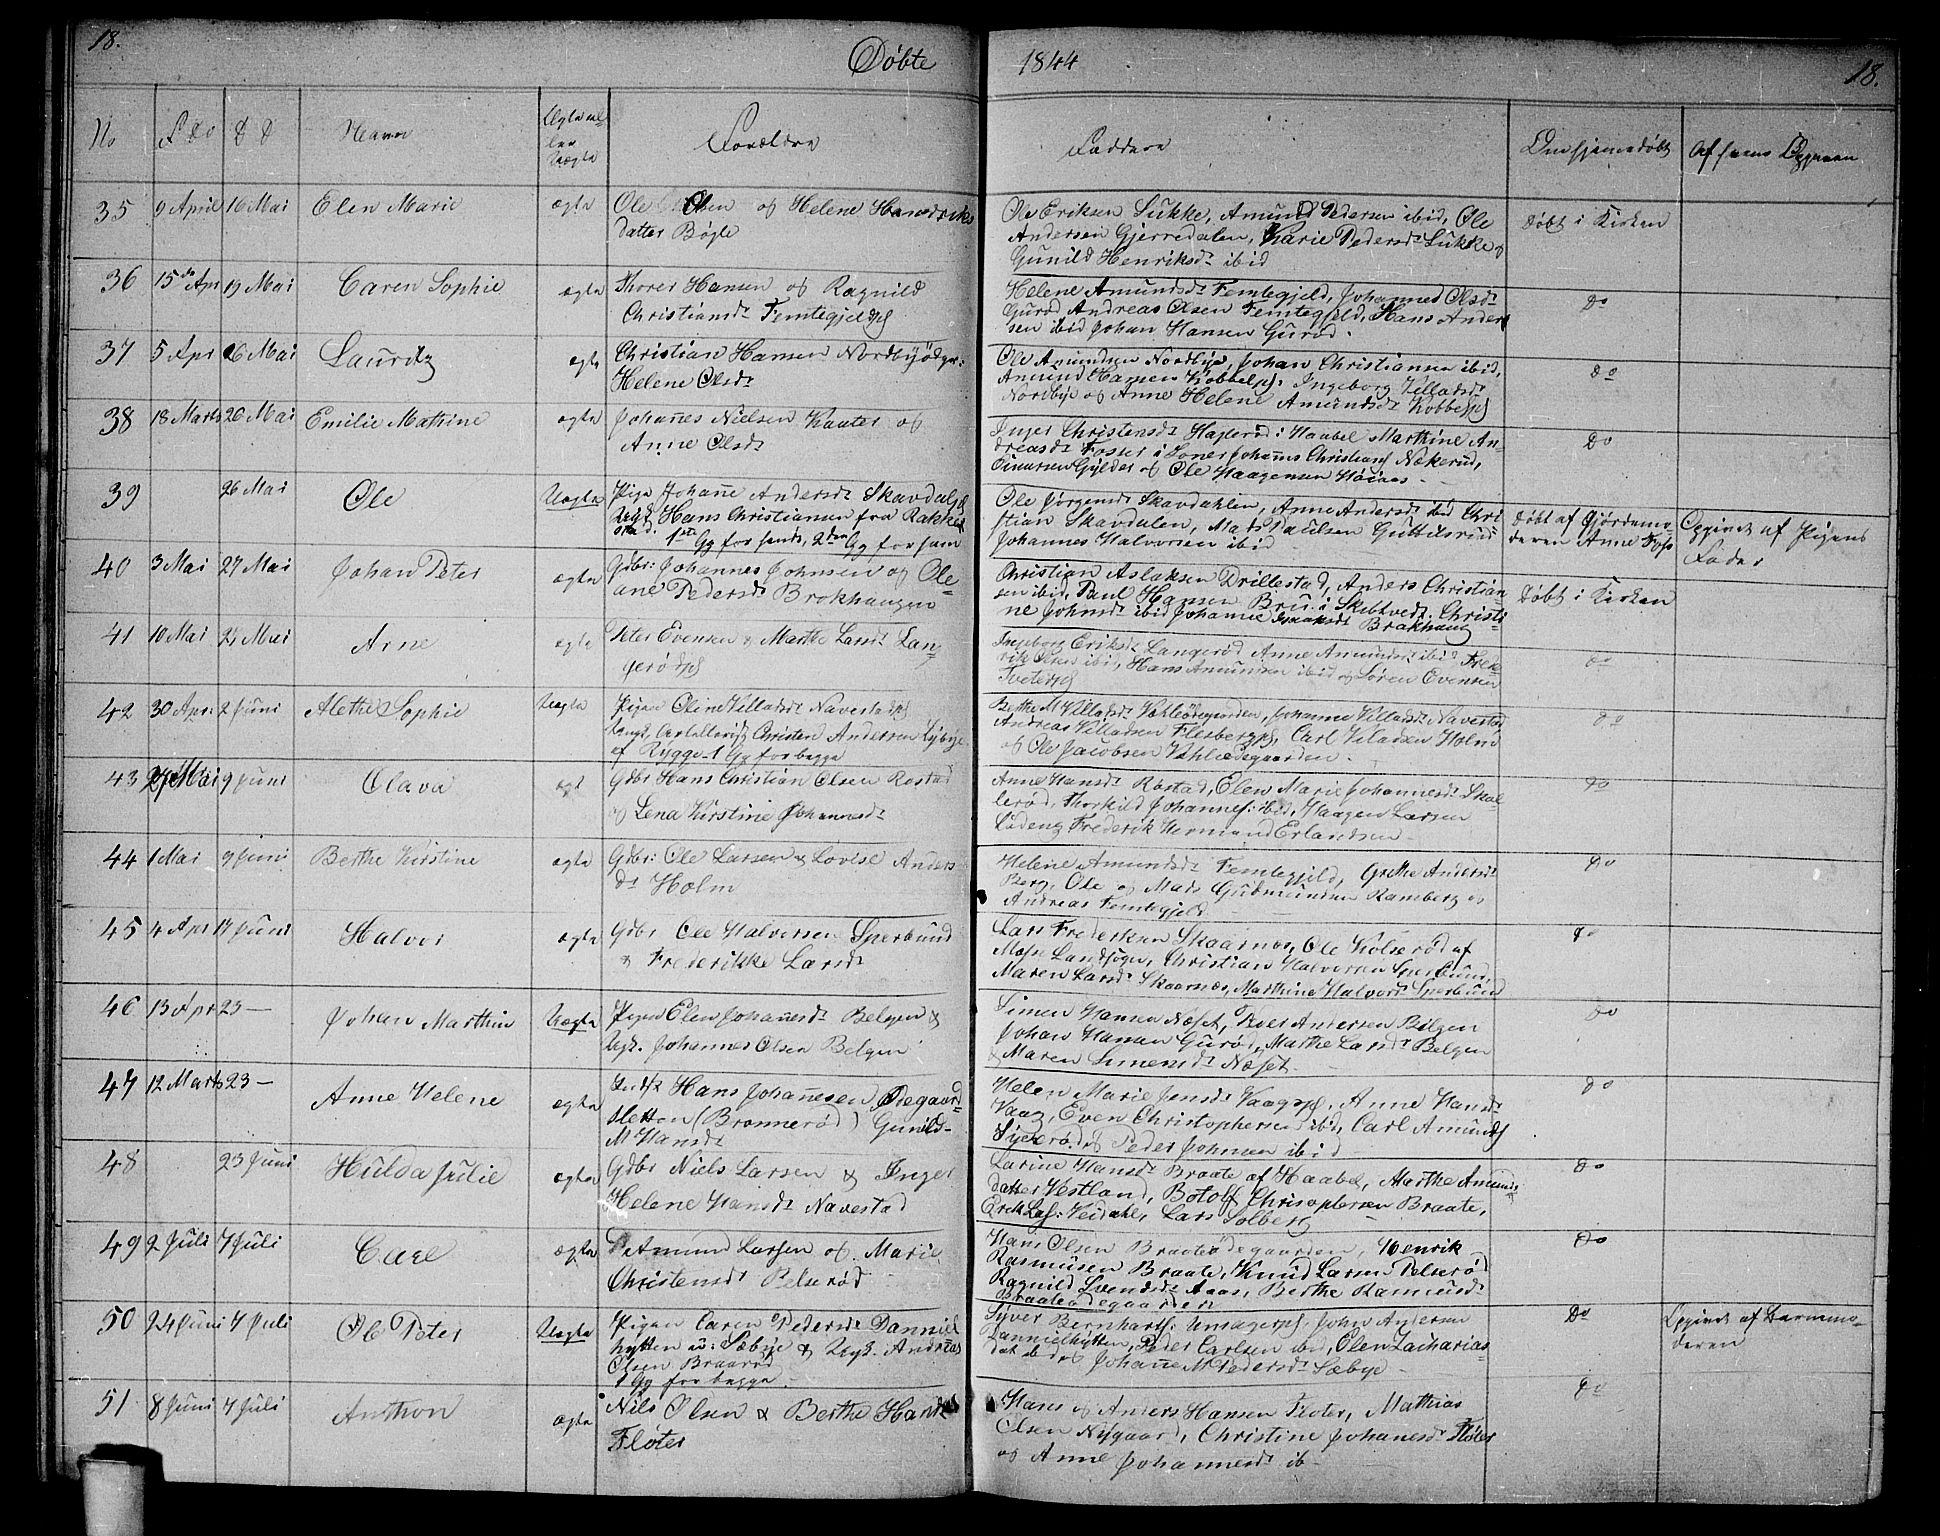 18.
Døbte
1844
18.
No
F Do
D D
Navn
Ægte el-
ler
Uægte
Forældre
Faddere
Om hjemmedøbt
35 9 April 16 Mai Elen Marie ægte
Ole Olsen og Helene Hendriks
datter Bøgle
Ole Eriksen Lukke, Amund Pedersen ibid, Ole
Andersen Gjerredalen, Karie Pedersd: Lukke og
Gunild Henriksd: ibid
Døbt i Kirken
36 15 Apr 19 Mai Caren Sophie ægte
Thorer Hansen og Ragnild
Christiansd: Femtegjeld
Helene Amundsd: Femtegjeld, Johanned Olsd:
Gurød Andreas Olsen Femtegjeld, Hans Ander
sen ibid Johan Hansen Gurød.
Do
37 5 Apr 26 Mai Lauritz ægte
Christian Hansen Nordbyødgr:
Helene Olsd:
Ole Amundsen Nordbye, Johan Christiansen ibid,
Amund Hansen Kobbelpl: Ingeborg Villadsd:
Nordbye og Anne Helene Amundsd: Kobbelpl
Do
38 18 Marts 26 Mai Emilie Mathine ægte
Johanes Nielsen Kaater og
Anne Olsd:
Inger Christensd: Haglerød i Haabøl Marthine An-
dreasd: Fosser i Soner Johanes Christians Nøkerud,
Einarsen Gylder og Ole Haagensen Høiaas
Do
39 26 Mai Ole Uægte
Pigen Johane Andersd: Skavdalspl
Ungk. Hans Christiansen fra Rakkestad.
1ste Gg for hende, 2den Gg for ham
Ole Jørgensen Skavdahlen, Anne Andersd: ibid Chri
stian Skavdalen, Mads Paulsen Guttilsrud
Johannes Halvorsen ibid
Døbt af Gjordemo-
deren Anne Foss
Opgivet af Pigens
Fader
40 3 Mai 27 Mai Johan Peter ægte
Gdbr: Johannes Johnsen og Ole-
ane Pedersd: Brokhaugen
Christian Aslaksen Drillestad, Anders Christian-
sen ibid, Paul Hansen Bru i Skibtvedt. Christi-
ne Johnsd: ibid Johanne Isaaksd: Brakhaug
Døbt i Kirken
41 10 Mai 27 Mai Arne ægte
Peter Evensen & Marthe Larsd: Lan-
gerødpl
Ingeborg Eriksd: Langerød Anne Amundsd: ibid Fred-
rik Olsen ibid, Hans Amundsen ibid og Søren Evensen
Tveterpl
Do
42 30 Apr. 2 Juni Alethe Sophie Uægte
Pigen Oline Villadsd: Navestadpl
Christen Andersen Lybye
af Rygge 1 Gg for begge
Berthe M Villadsd: Vahleødegaarden, Johanne Villadsd: Navestad
Andreas Villadsen Flesbergpl, Carl Villadsen Holm
og Ole Jacobsen Vahleødegaarden.
Do
43 27 Mai 9 Juni Olava ægt
Gdbr Hans Christian Olsen Rostad
og Lena Kirstine Johannesd:
Anne Hansd: Røstad, Elen Marie Johannesd: Skol-
lerød, Thorkild Johannes: ibid, Haagen Larsen
Lødeng Frederik Hermand Erlandsen
Do
44 1 Mai 9 Juni Berthe Kirstine ægte
Gdbr: Ole Larsen & Lovise Anders
d: Holm
Helene Amundsd: Femtegjeld, Grethe Andersd:
Berg, Ole og Mads Gudmundsen Ramberg og
Andreas Femtegjeld
Do
45 4 Apr 17 Juni Halvor ægte
Gdbr Ole Halvorsen Sperbund
& Frederikke Larsd:
Lars Frederiksen Skaarnæs, Ole Kolserød af
Mosse Landsogn, Christian Halvorsen Sperbund,
Maren Larsd: Skaarnæs, Marthine Halvorsd: Sperbund
Do
46 13 Apr 23 — Johan Marthin Uægte
Pigen Elen Johanesd: Belgen &
Ugk. Johannes Olsen Belgen
Simen Hansen Næset, Iver Andersen Bilgen
Johan Hansen Gurød, Marthe Larsd: Belgen
& Maren Simensd: Næset.
Do
47 12 Marts 23 — Anne Helene ægte
Hans Johanesen Ødegaard-
sletten (Brønnerød) Gunild-
M Hansd:
Helen Marie Jensd: Vaagspl, Anne Hansd:
Vaag, Even Christophersen ibid, Carl Amunds
og Peder Johnsen ibid
Do
48 23 Juni Hulda Julie ægte
Gdbr Niels Larsen & Inger
Helene Hansd: Navestad
Larine Hansd: Braate af Haabøl, Marthe Amunds
datter Vestland, Botolf Christophersen Braate,
Erik Las: Veidahl, Lars Solberg
Do
49 2 Juli 7 Juli Carl ægte
Amund Larsen og Marie
Christensd: Pelserød
Hans Olsen Braateødegaarden, Henrik
Rasmusen Braate, Knud Larsen Pelserød
Ragnild Svendsd: Aaas, Berthe Rasmusd:
Braateødegaarden
Do
50 24 Juni 7 Juli Ole Peter Uægte
Pigen Caren Pedersd: Danniel
hytten u: Sæbye & Ugk. Andreas
Olsen Braarød
1 Gg for begge
Syver Bernhards: Johan Andersen
Dannielhytten, Peder Carlsen ibid, Olen Zacharias-
dat ibid og Johane M Pedersd: Sæbye
Do
Opgivet af Barnemo-
deren
51 8 Juni 7 Juli Anthon ægte
Nils Olsen & Berthe Hansd:
Floter
Hans og Anders Hansen Floter, Mathias
Olsen Nygaard, Christine Johanesd: Fløter
og Anne Johannesd: ib
Do